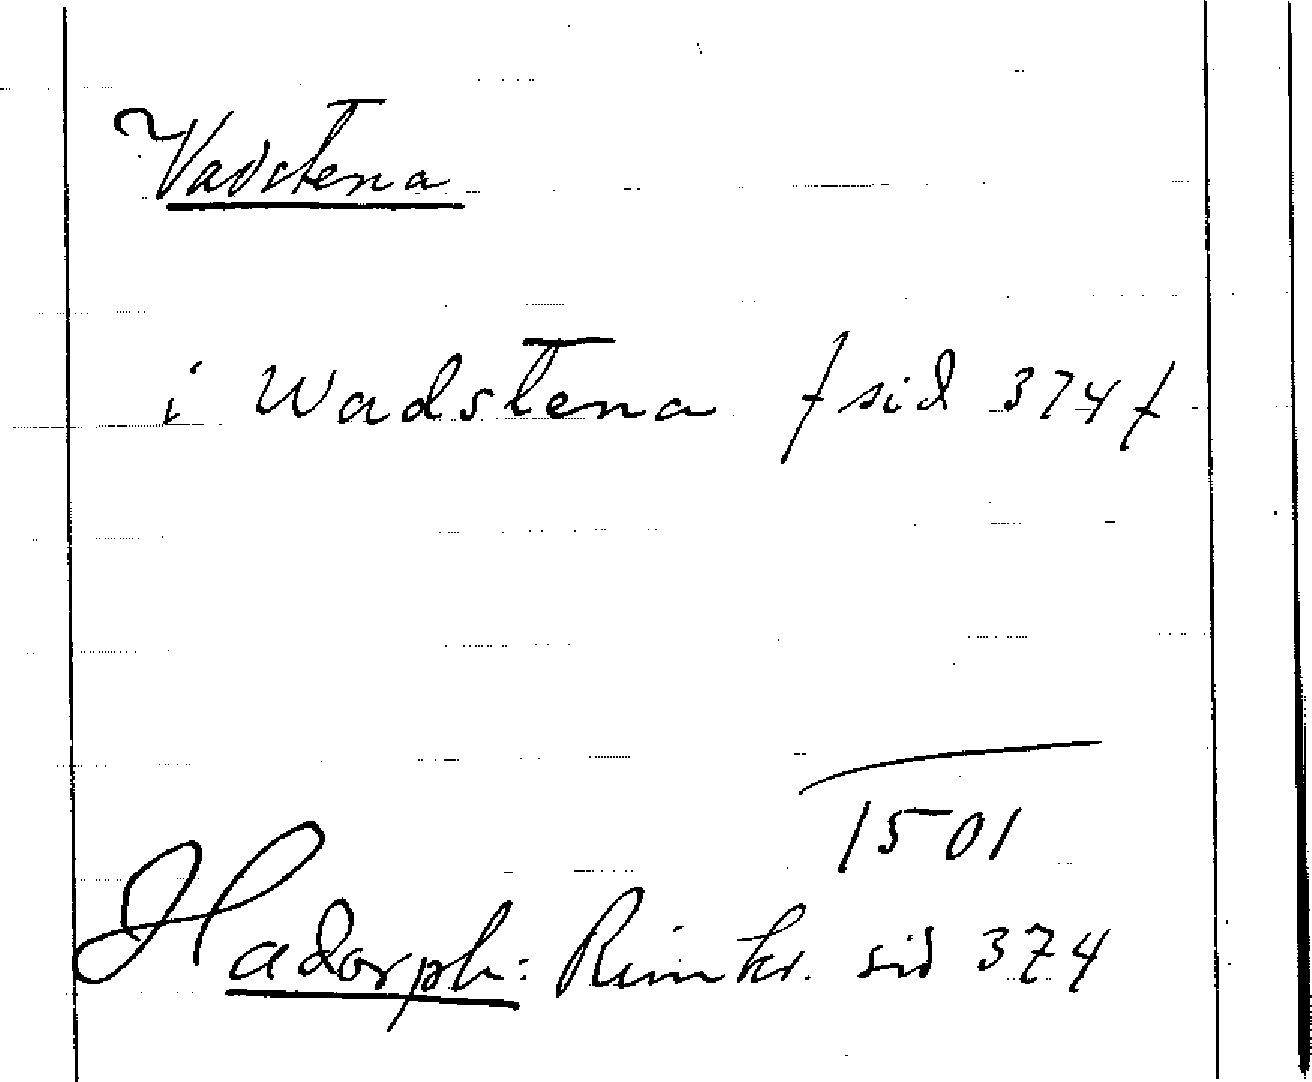 Vadstena
i Wadstena /sid 374/
1501
Hadorph: Rimkr. sid 374